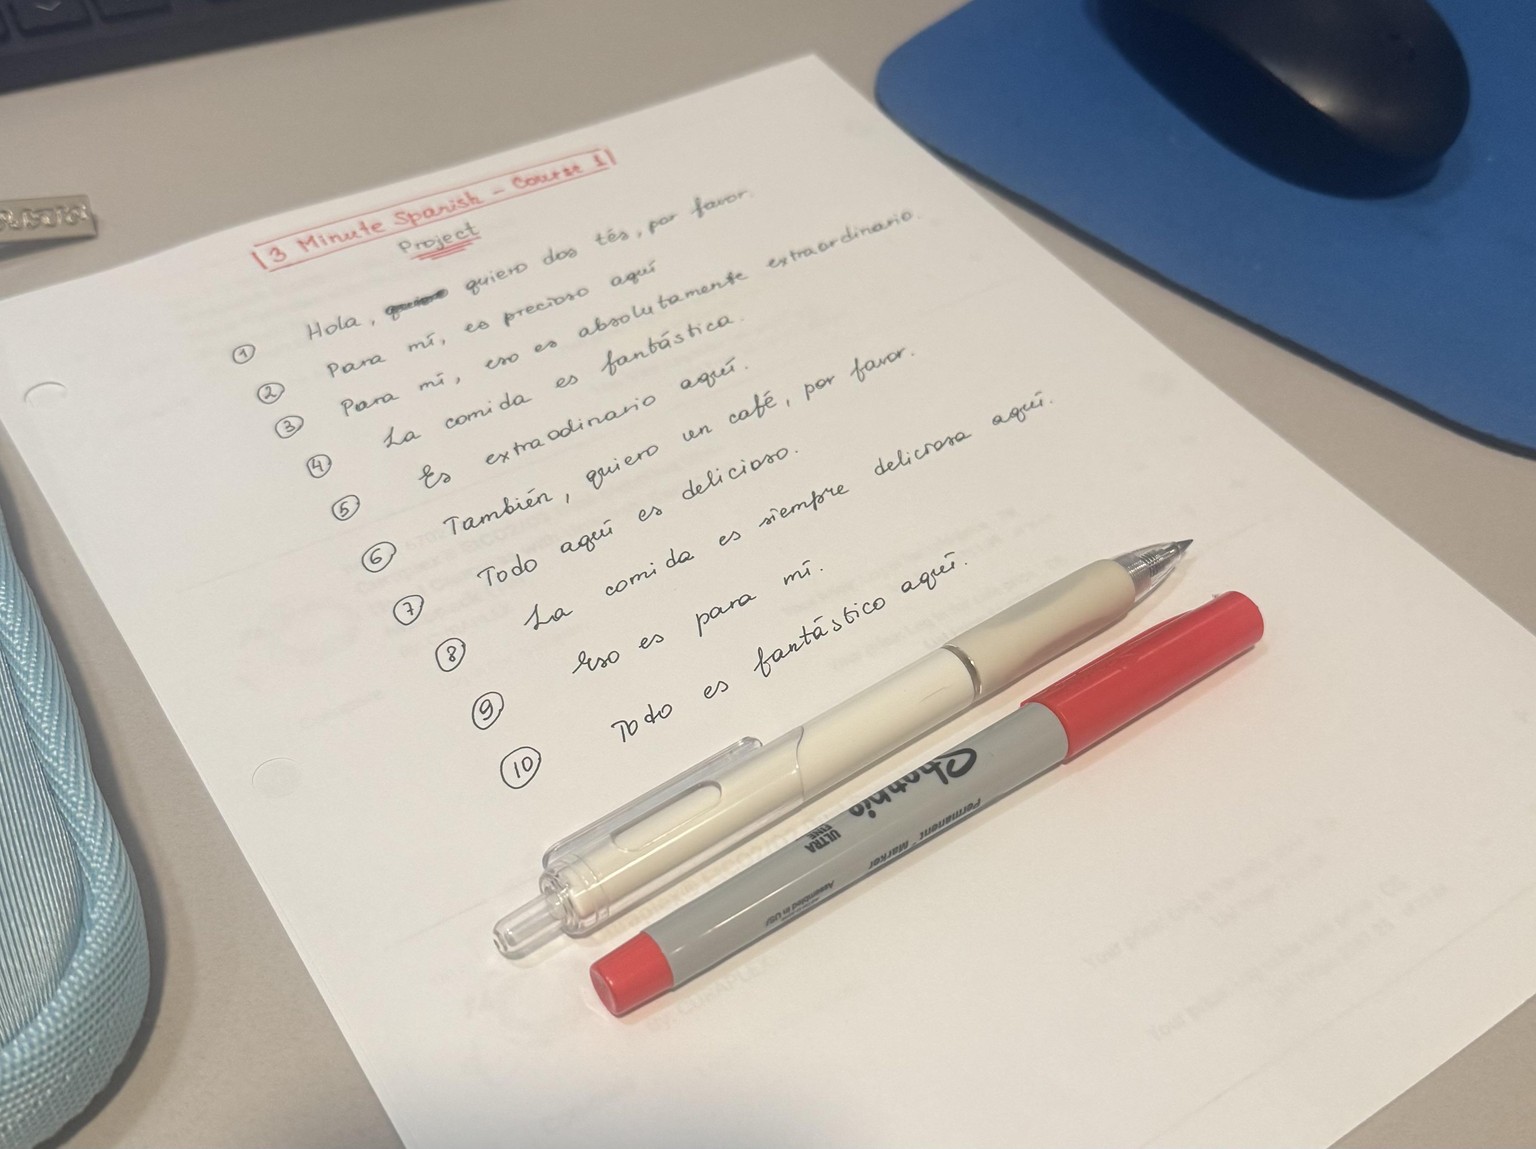 3 Minute Spanish - Course 1
Project
① Hola, quiero dos tés, por favor.
② Para mí, es precioso aquí
③ Para mí, eso es absolutamente extraordinario.
④ La comida es fantástica.
⑤ Es extraodinario aquí.
⑥ También, quiero un café, por favor.
⑦ Todo aquí es delicioso.
⑧ La comida es siempre deliciosa aquí.
⑨ Eso es para mí.
⑩ Todo es fantástico aquí.
Sharpie
ULTRA
FINE
Permanent Marker
Assembled in USA